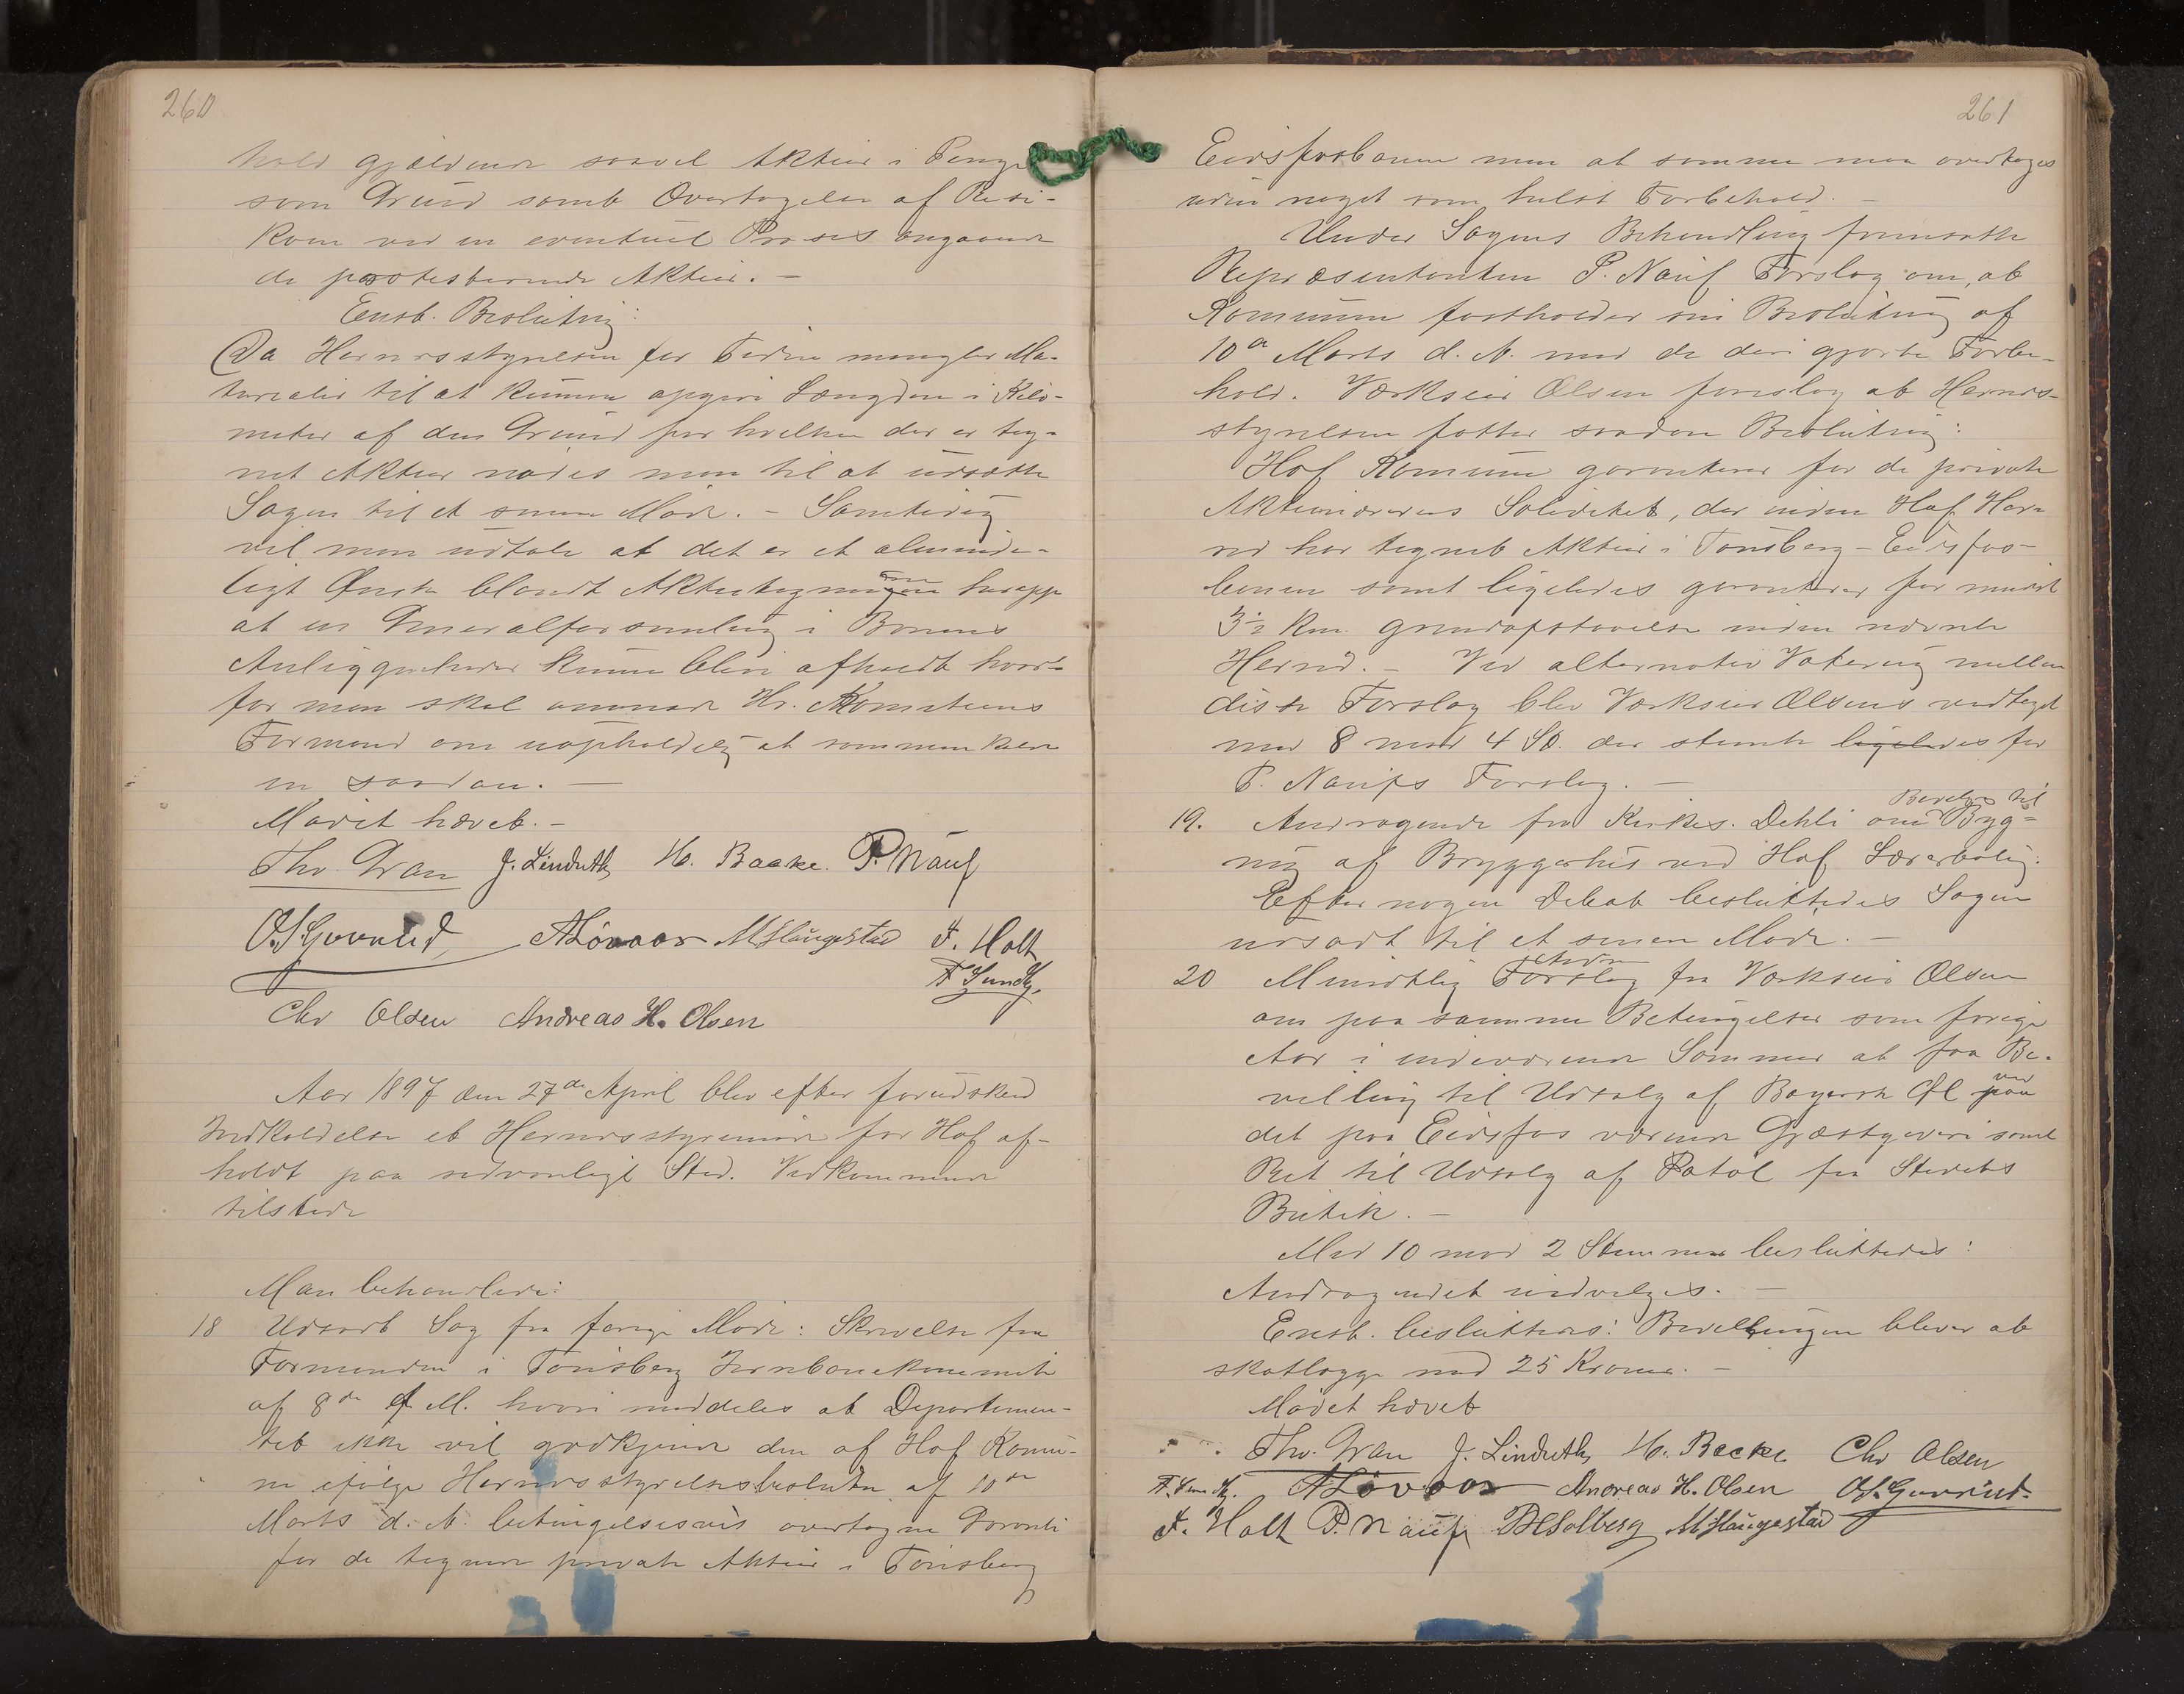 260
hold gjældende saavel Aktier i Penge
som Grund samt Overtagelse af Risi-
koen ved en eventuel Proses angaaende
de protesterende Aktier. -
Enst. Beslutning:
Da Herredsstyrelsen for Tiden mangler Ma-
terialer til at kunne opgive Længden i Kilo-
meter af den Grund for hvilken der er teg-
net Aktier nødes man til at udsætte
Sagen til et senere Møde. - Samtidig
vil man udtale at det er et alminde-
ligt Ønske blandt Aktietegnerne heroppe
at en Generalforsamling i Banens
Anliggender kunne blive afholdt hvor-
for man skal anmode Hr. Komiteens
Formand om uopholdelig at sammenkalde
en saadan. -
Mødet hævet. -
Thv. Gran J. Linduth H. Bakke. P. Nauf
O. S. Gunnerød A Løvaas M Haugestad F. Holt
F Sundby.
Chr Olsen Andreas H. Olsen
Aar 1897 den 27de April blev efter forudskeed
Indkaldelse et Herredsstyremøde for Hof af-
holdt paa sedvanligt Sted. Vedkommende
tilstede
Man behandlede:
18 Udsadt Sag fra forrige Møde: Skrivelse fra
Formanden i Tønsberg Jernbanekomite
af 8de f. M. hvori meddeles at Departemen-
tet ikke vil godkjende den af Hof Komu-
ne ifølge Herredsstyrelsesbeslutn af 10de
Marts d. A. betingelsesvis overtagne Garanti
for de tegnede private Aktier i Tønsberg
261
Eidsfosbanen men at samme maa overtages
uden noget som helst Forbehold. -
Under Sagens Behandling fremsatte
Repræsentanten P. Nauf Forslag om, at
Komunen fastholder sin Beslutning af
10de Marts d. A. med de deri gjorte Forbe-
hold. Værkseier Olsen foreslog at Herreds-
styrelsen fatter saadan Beslutning:
Hof Komune garanterer for de private
Aktionærers Soliditet, der inden Hof Her-
red har tegnet Aktier i Tønsberg - Eidsfos-
banen samt ligeledes garanterer for mindst
3½ Km. grundafstaaelse inden nævnte
Herred. - Ved alternativ Votering mellem
disse Forslag blev Værkseier Olsens vedtaget
med 8 mod 4 St. der stemte ligeledes for
P. Naufs Forslag. -
19. Andragende fra Kirkes. Dehli om Bevilgn til Byg-
ning af Bryggerhus ved Hof Lærerbolig.
Efter nogen Debat besluttedes Sagen
udsadt til et senere Møde. -
20 Mundtlig Forslag fra Værkseier Olsen
om paa samme Betingelser som forrige
Aar i indeværende Sommer at faa Be-
villing til Udsalg af Bayersk Øl ved
det paa Eidsfos værende Gjæstgiveri samt
Ret til Udsalg af Patøl fra Stedets
Butik. -
Med 10 mod 2 Stemmer besluttedes:
Andragendet indvilges. -
Enst. besluttedes: Bevillingen bliver at
skatlægge med 25 Kroner. -
Mødet hævet
Thv. Gran J. Linduth H. Bakke Chr Olsen
F. Sundby. A Løvaas Andreas H. Olsen O. S. Gunnerød.
F. Holt P. Nauf Solberg M Haugestad